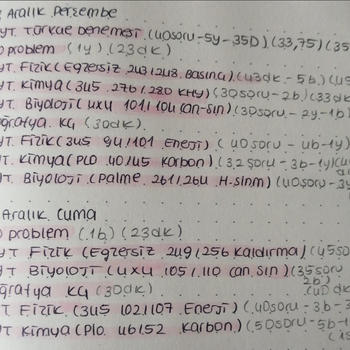 Aralık Perşembe
YT. Türkçe Denemesi (40soru-5y-35D) (33,75) (35
problem (1y) (23dk)
YT. Fizik (Egzersiz 243/248 Basınç) (43dk.-5b)
YT. Kimya (345 .276/280 KHY) (30soru-2b) (33dk
YT. Biyoloji (4x4 101/104 can-sın) (30soru-2y-1b)
ğrafya. KG (30dk).
T. Fizik (345 94/101 .Enerji) (40soru-4b-1y)
T. Kimya (PLO .40/45 Karbon) (32soru-3b-1y)
T. Biyoloji (Palme .261/264 H.sinm) (40soru-3y
Aralık. Cuma
problem (.1b) (23dk)
YT Fizik (Egzersiz 249/256 Kaldırma) (45so
YT Biyoloji (4x4 105/.110 can.sın) (35soru
2b)
ğrafya KG (30dk) (40dk
T Fizik (345 102/107 .Enerji) (.40soru-3b-3
T Kimya (Plo. 46/52 Karbon) (50soru-5b-1